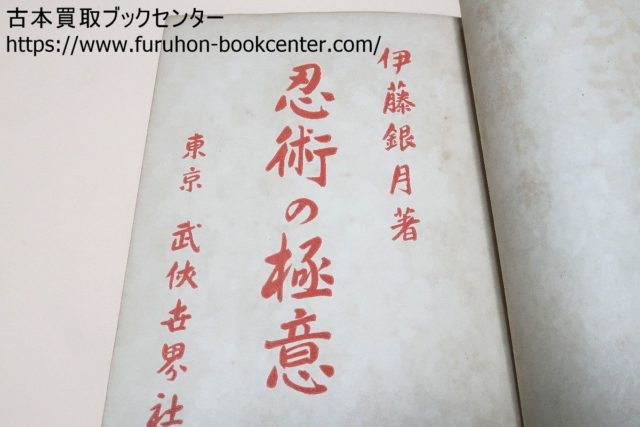 古本買取ブックセンター
https://www.furuhon-bookcenter.com/
伊藤銀月著
忍術の極意
東京 武侠世界社